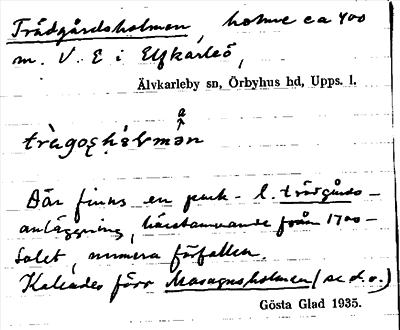 Trädgårdsholmen, holme ca 400
m. V. E i Elfkarleö,
Älvkarleby sn, Örbyhus hd, Upps. l.
Där finns en park- l. trädgårds-
anläggning, härstammande från 1700-
talet, numera förfallen.
Kallades förr Masugnsholmen (se d.o.)
Gösta Glad 1935.